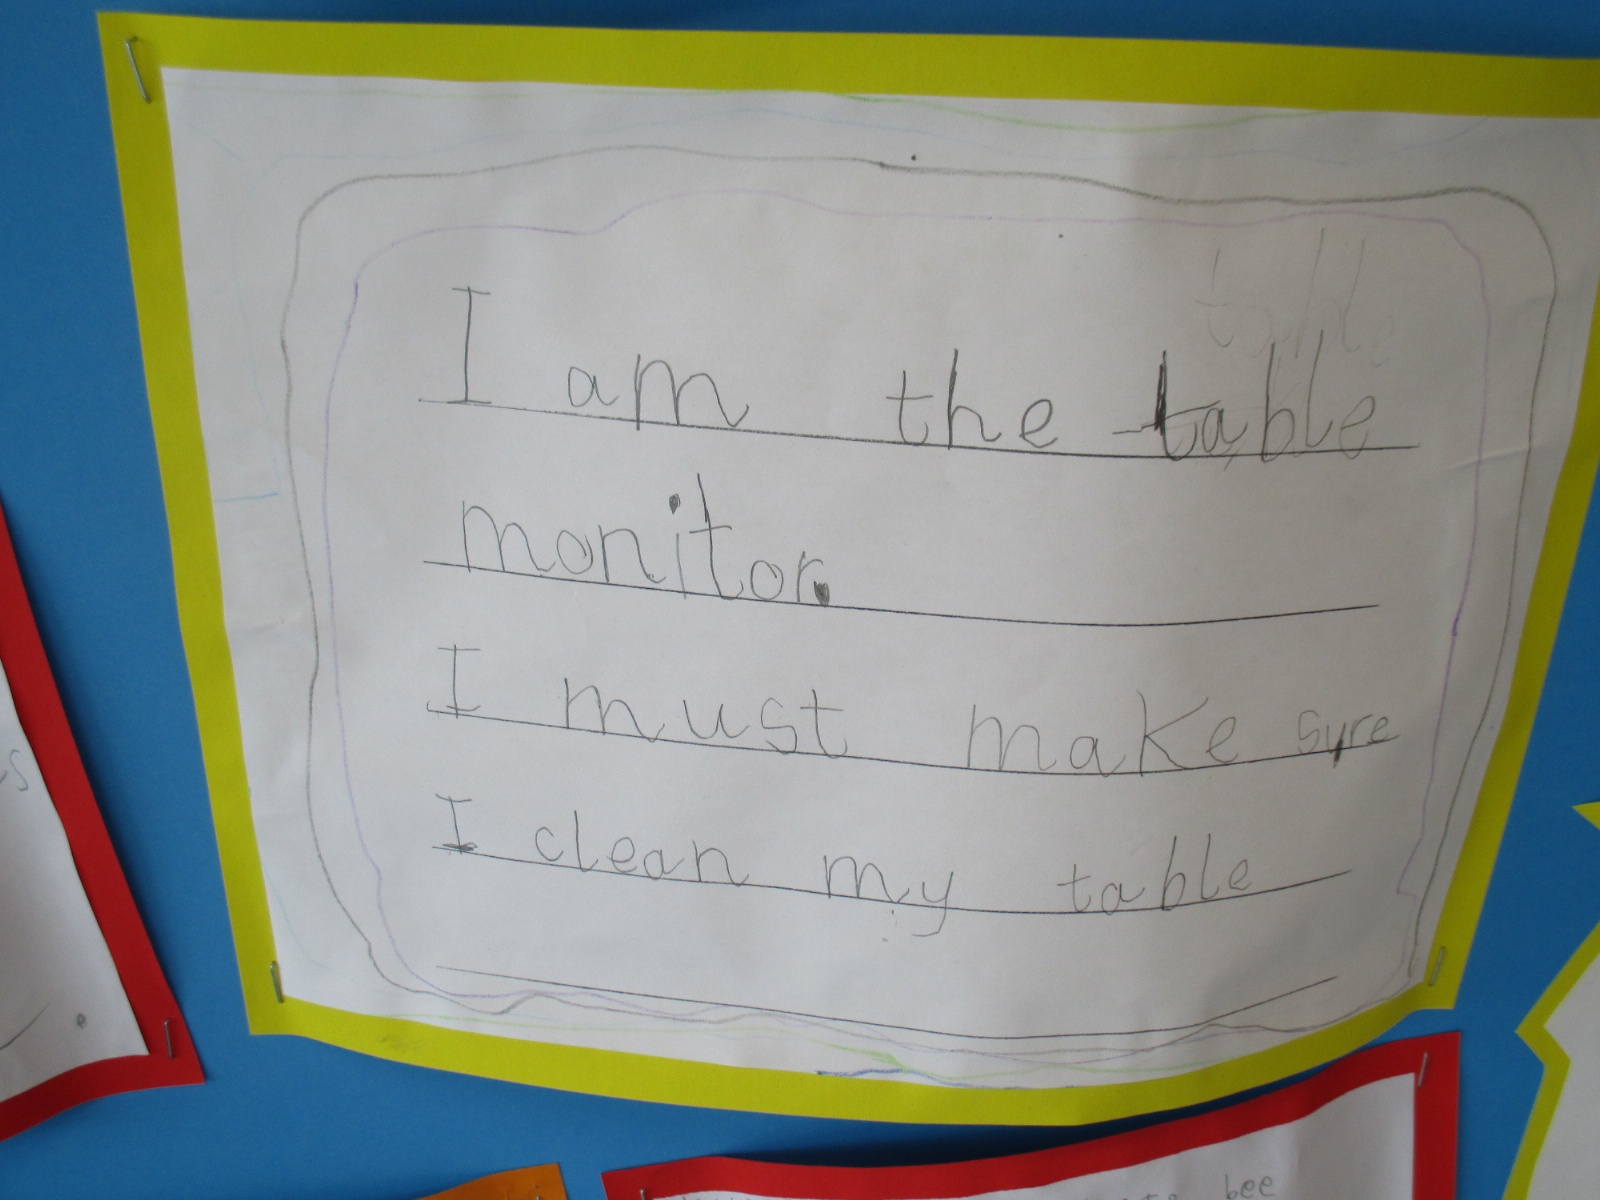 I am the table
monitor.
I must make sure
I clean my table
bee